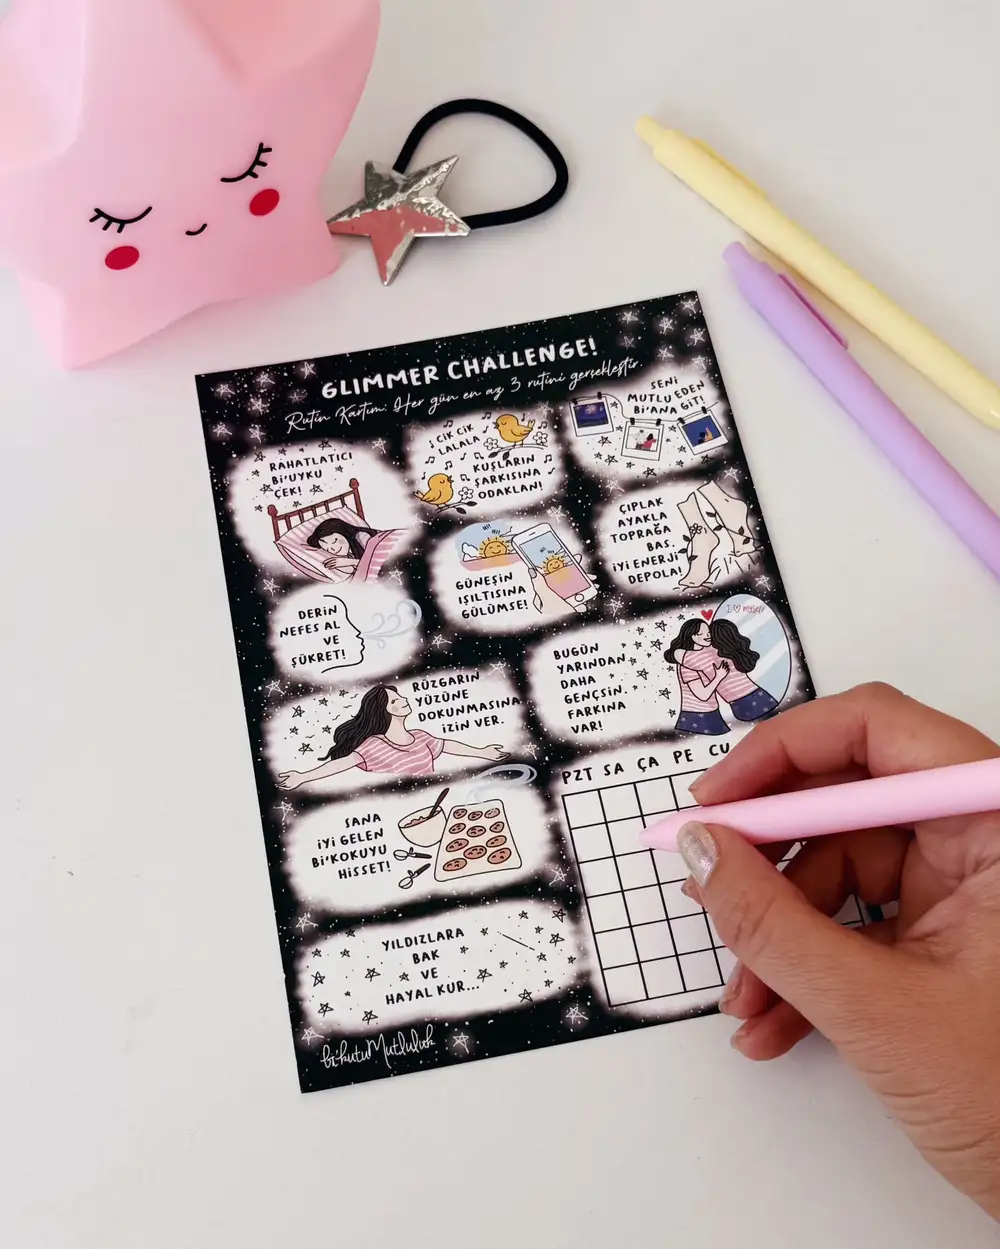 GLIMMER CHALLENGE!
Rutin Kartım: Her gün en az 3 rutini gerçekleştir.
RAHATLATICI
Bi'UYKU
ÇEK!
CiK CiK
LALALA
KUŞLARIN
ŞARKISINA
ODAKLAN!
SENİ
MUTLU EDEN
Bi'ANA GİT!
DERİN
NEFES AL
VE
ŞÜKRET!
Hi!
Hi!
GÜNEŞİN
IŞILTISINA
GÜLÜMSE!
ÇIPLAK
AYAKLA
TOPRAĞA
BAS.
İYİ ENERJİ
DEPOLA!
RÜZGARIN
YÜZÜNE
DOKUNMASINA
İZİN VER.
BUGÜN
YARINDAN
DAHA
GENÇSİN.
FARKINA
VAR!
I ♡ myself
SANA
İYİ GELEN
Bi'KOKUYU
HİSSET!
PZT SA ÇA PE CU
YILDIZLARA
BAK
VE
HAYAL KUR...
bi'kutuMutluluk